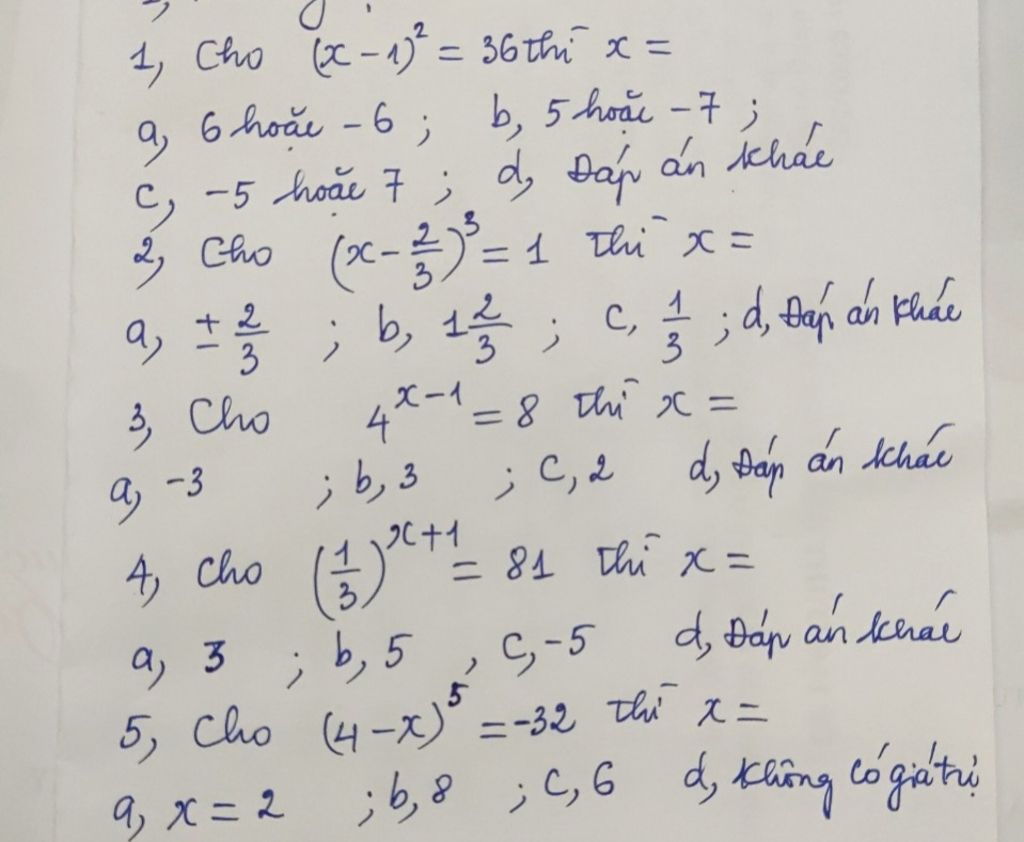 1, Cho (x - 1)² = 36 thì x =
a, 6 hoặc - 6 ; b, 5 hoặc - 7 ;
c, -5 hoặc 7 ; d, Đáp án khác
2, Cho (x - 2/3)³ = 1 thì x =
a, ± 2/3 ; b, 1 2/3 ; c, 1/3 ; d, Đáp án khác
3, Cho 4^(x-1) = 8 thì x =
a, -3 ; b, 3 ; c, 2 d, Đáp án khác
4, Cho (1/3)^(x+1) = 81 thì x =
a, 3 ; b, 5 , c, -5 d, Đáp án khác
5, Cho (4 - x)⁵ = -32 thì x =
a, x = 2 ; b, 8 ; c, 6 d, không có giá trị